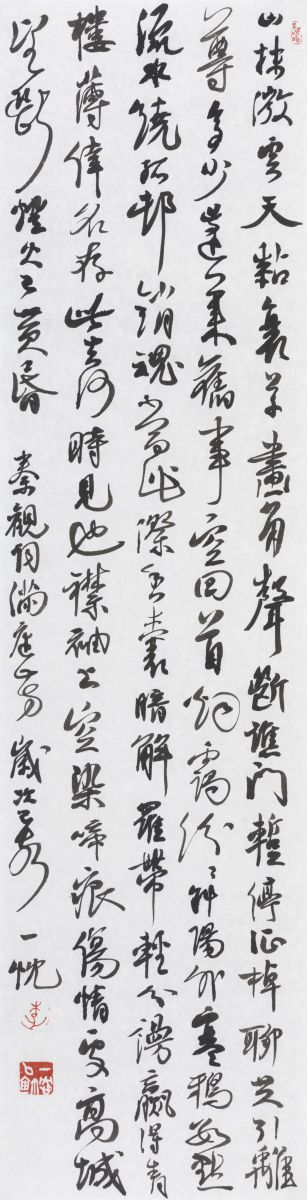 山抹微雲天粘衰草畫角聲斷譙门暫停征棹聊共引離
尊多少蓬萊舊事空回首烟靄紛紛斜陽外寒鴉數點
流水繞孤邨銷魂當此際香囊暗解羅帶輕分謾贏得青
樓薄倖名存此去何時見也襟袖上空染啼痕傷情處高城
望斷燈火已黃昏 秦觀詞滿庭芳 歲次 一忱
李